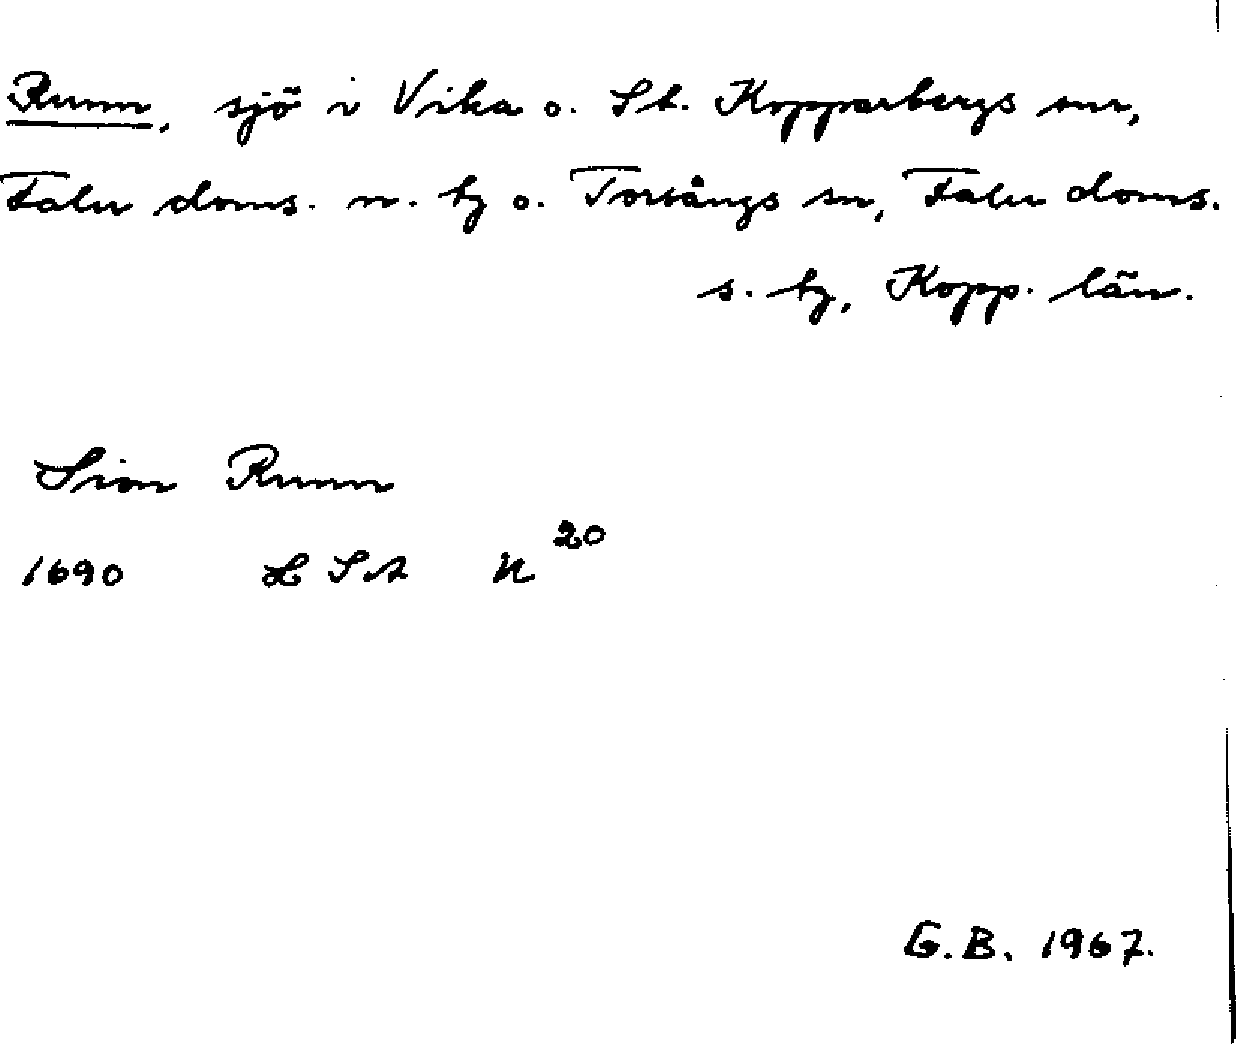 Runn, sjö i Vika o. St. Kopparbergs snr,
Falu doms. n. tg o. Torsångs sn, Falu doms.
s. tg, Kopp. län.
Sion Runn
1690 LSA U 20
G.B. 1967.